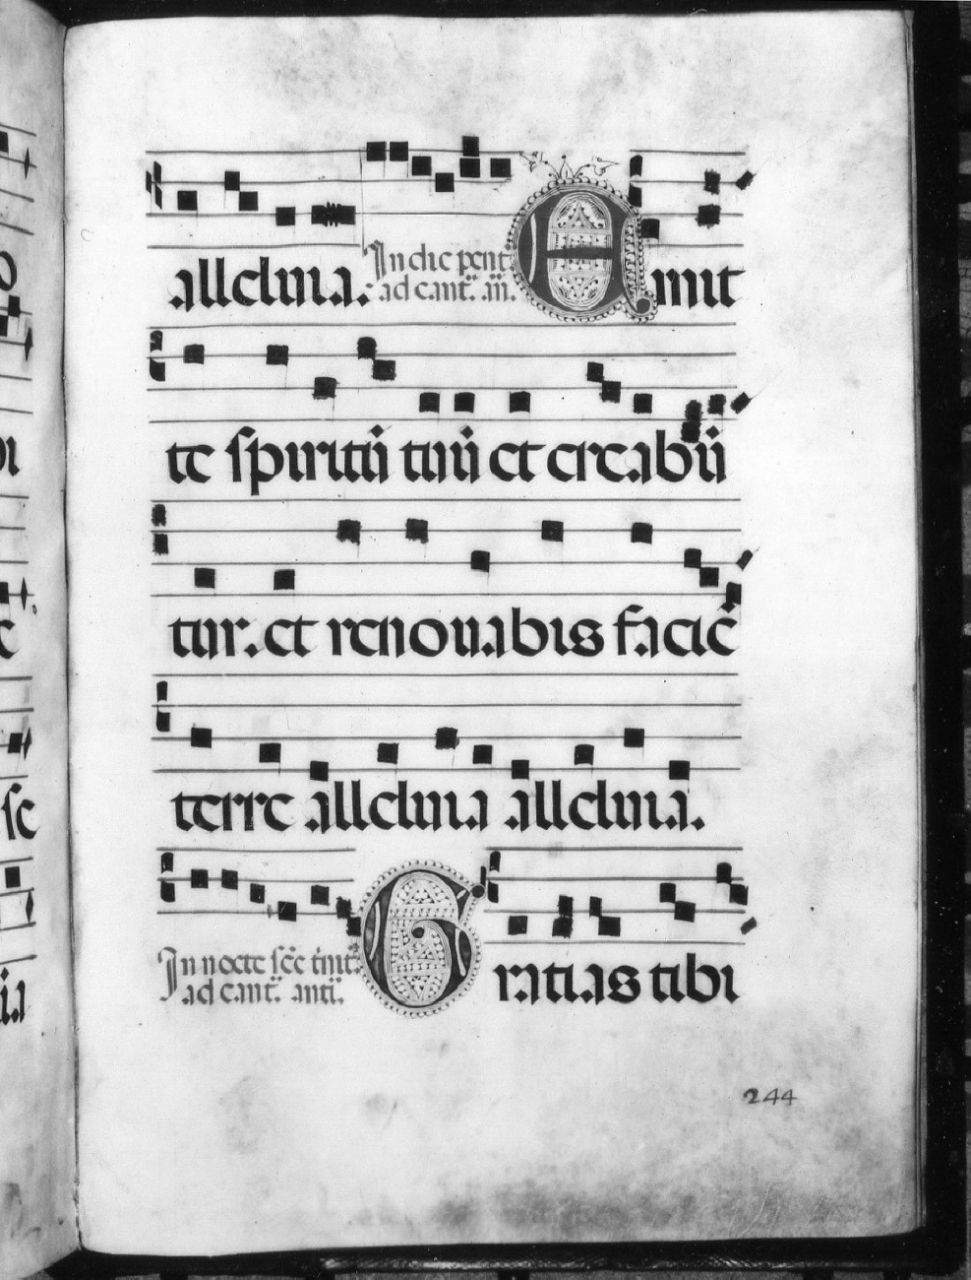 alleluia. In die pent̄.
ad cant̄. añ. Emit
te spiritū tuū et creabū
tur. et renouabis faciē
terre alleluia alleluia.
In nocte sc̄e t̄nit̄.
ad cant̄. anti. Gratias tibi
244